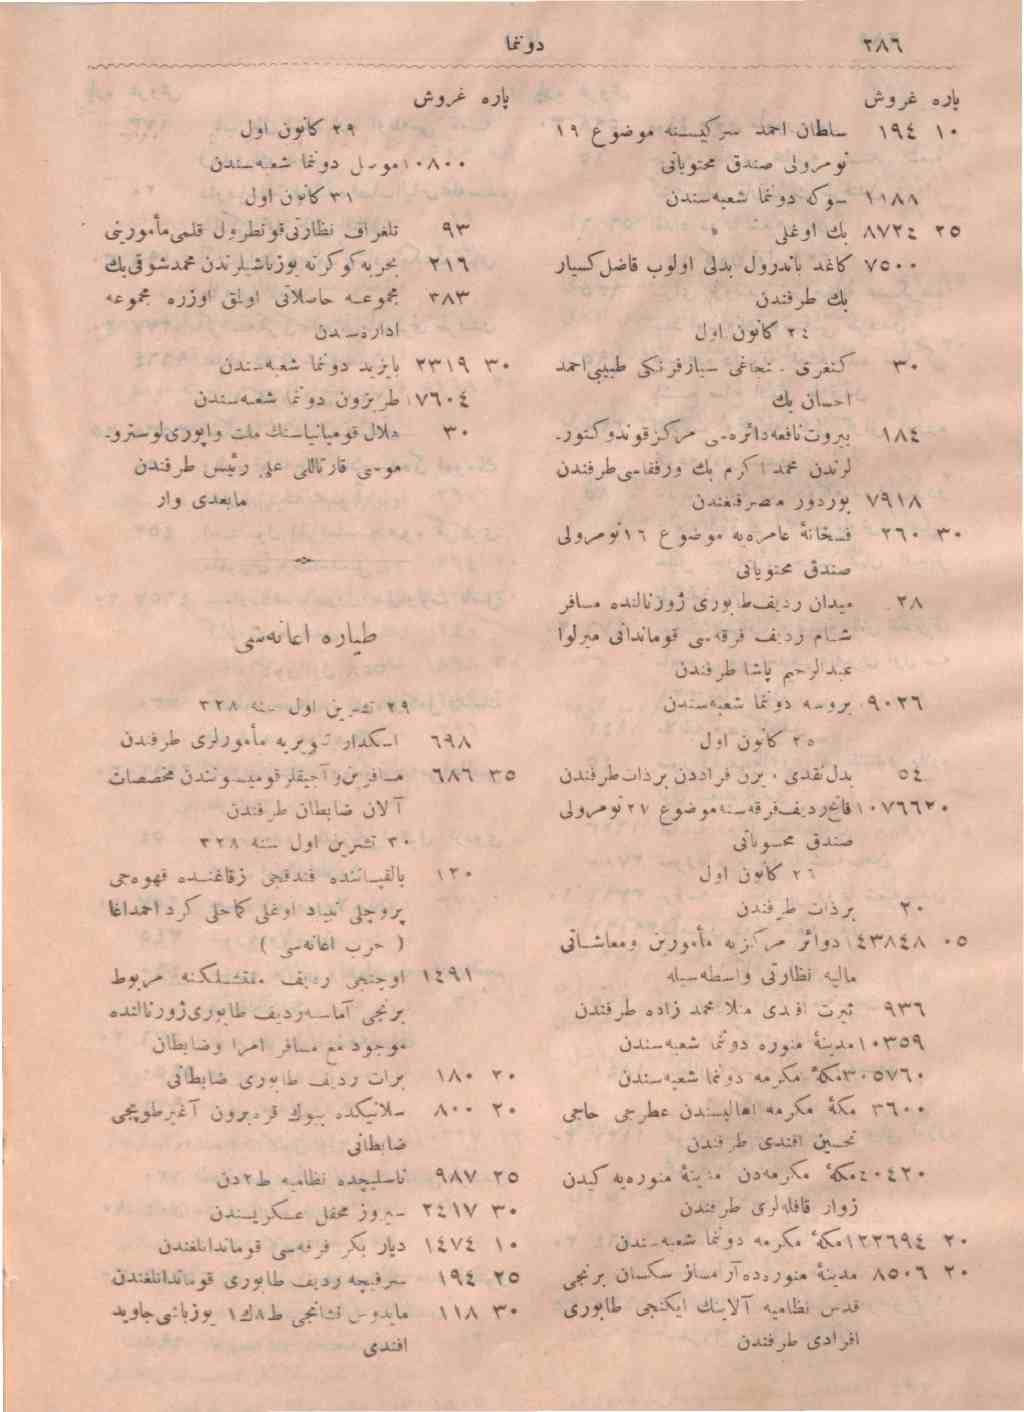 ٢٨٦
دونما
پاره غروش
١٠ ١٩٤ سلطان احمد سركيسنه موضوع ١٩
نومرولى صندق محتوياتى
١١٨٨ سوكه دونما شعبه‌سندن
٢٥ ٨٧٢٤ بك اوغلى
٧٥٠٠ كاغد باندرول بدلى اولوب فاضل كسيار
بك طرفندن
٢٤ كانون اول
٣٠ كنغرى . نجاغى سيارفرنكى طبيبى احمد
احسان بك
١٨٤ بيروت نافعه دائره‌سى مركز قوندوكتور.
لرندن محمد اكرم بك ورفقاسى طرفندن
٧٩١٨ بوردور متصرفلغندن
٣٠ ٢٦٠ فسخانۀ عامره‌يه موضوع ١٦ نومرولى
صندق محتوياتى
٢٨ ميدان رديف طابورى ژورنالنده مسافر
شام رديف فرقه‌سى قوماندانى ميرلوا
عبدالرحيم پاشا طرفندن
٩٠٢٦ بروسه دونما شعبه‌سندن
٢٥ كانون اول
٥٤ بدل نقدى ويرن افراددن برذات طرفندن
٢٠ ١٠٧٦٦ فاتح رديف فرقه‌سنه موضوع ٢٧ نومرولى
صندق محتوياتى
٢٦ كانون اول
٢٠ برذات طرفندن
٠٥ ١٤٣٨٤٨ دوائر مركزيه مأمورين ومعاشاتى
ماليه نظارتى واسطه‌سيله
٩٣٦ ثبرت افندى منلا محمد زاده طرفندن
١٠٣٥٩ مدينۀ منوره دونما شعبه‌سندن
٣٠٥٧٦٠ مكۀ مكرمه دونما شعبه‌سندن
٣٦٠٠ مكۀ مكرمه اهاليسندن عطرجى حاجى
تحسين افندى طرفندن
٤٠٤٢٠ مكۀ مكرمه‌دن مدينۀ منوره‌يه كيدن
زوار قافله‌لرى طرفندن
٢٠ ١٢٢٦٩٤ مكۀ مكرمه دونما شعبه‌سندن
٢٠ ٨٥٠٦ مدينۀ منوره‌ده آرمساز سكسان برنجى
قدس نظاميه آلاينك ايكنجى طابورى
افرادى طرفندن
پاره غروش
٢٩ كانون اول
١٠٨٠٠ موصل دونما شعبه‌سندن
٣١ كانون اول
٩٣ تلغراف نظارتى قونطرول قلمى مأمورينى
٢١٦ بحريه كوكرته يوزباشيلرندن محمد شوقى بك
٣٨٣ مجموعه حاصلاتى اولمق اوزره مجموعه
اداره‌سندن
٣٠ ٢٣١٩ بايزيد دونما شعبه‌سندن
١٧٦٠٤ طربزون دونما شعبه‌سندن
٣٠ هلال قومپانياسنك ملت واپورى لوسترو.
موسى قارتاللى على رئيس طرفندن
مابعدى وار
طياره اعانه‌سى
٢٩ تشرين اول سنه ٣٢٨
٦٩٨ اسكدار تنويريه مأمورلرى طرفندن
٣٥ ٦٨٦ مسافرين وآچيقلر قوميسيونندن مخصصات
آلان ضابطان طرفندن
٣٠ تشرين اول سنه ٣٢٨
١٢٠ بالقپاننده فندقجى زقاغنده قهوه‌جى
پروجلى نيياد اوغلى كماخلى كرد احمداغا
( حرب اغانه‌سى )
١٤٩١ اوچنجى رديف مفتشلكنه مربوط
برنجى آماسيه رديف طابورى ژورنالنده
موجود مع مسافر امرا وضابطان
٢٠ ١٨٠ برات رديف طابورى ضابطانى
٢٠ ٨٠٠ سلانيكده بيوك قره‌برون آغيرطوپجى
ضابطانى
٢٥ ٩٨٧ ناسليچده نظاميه ط ٢ دن
٣٠ ٢٤١٧ سيروز محفل عسكريسندن
١٠ ١٤٧٤ ديار بكر فرقه‌سى قوماندانلغندن
٢٥ ١٩٤ سرفيچه رديف طابورى قوماندانلغندن
٣٠ ١١٨ مايدوس نشانجى ط ٨ ك ١ يوزباشى جاويد
افندى